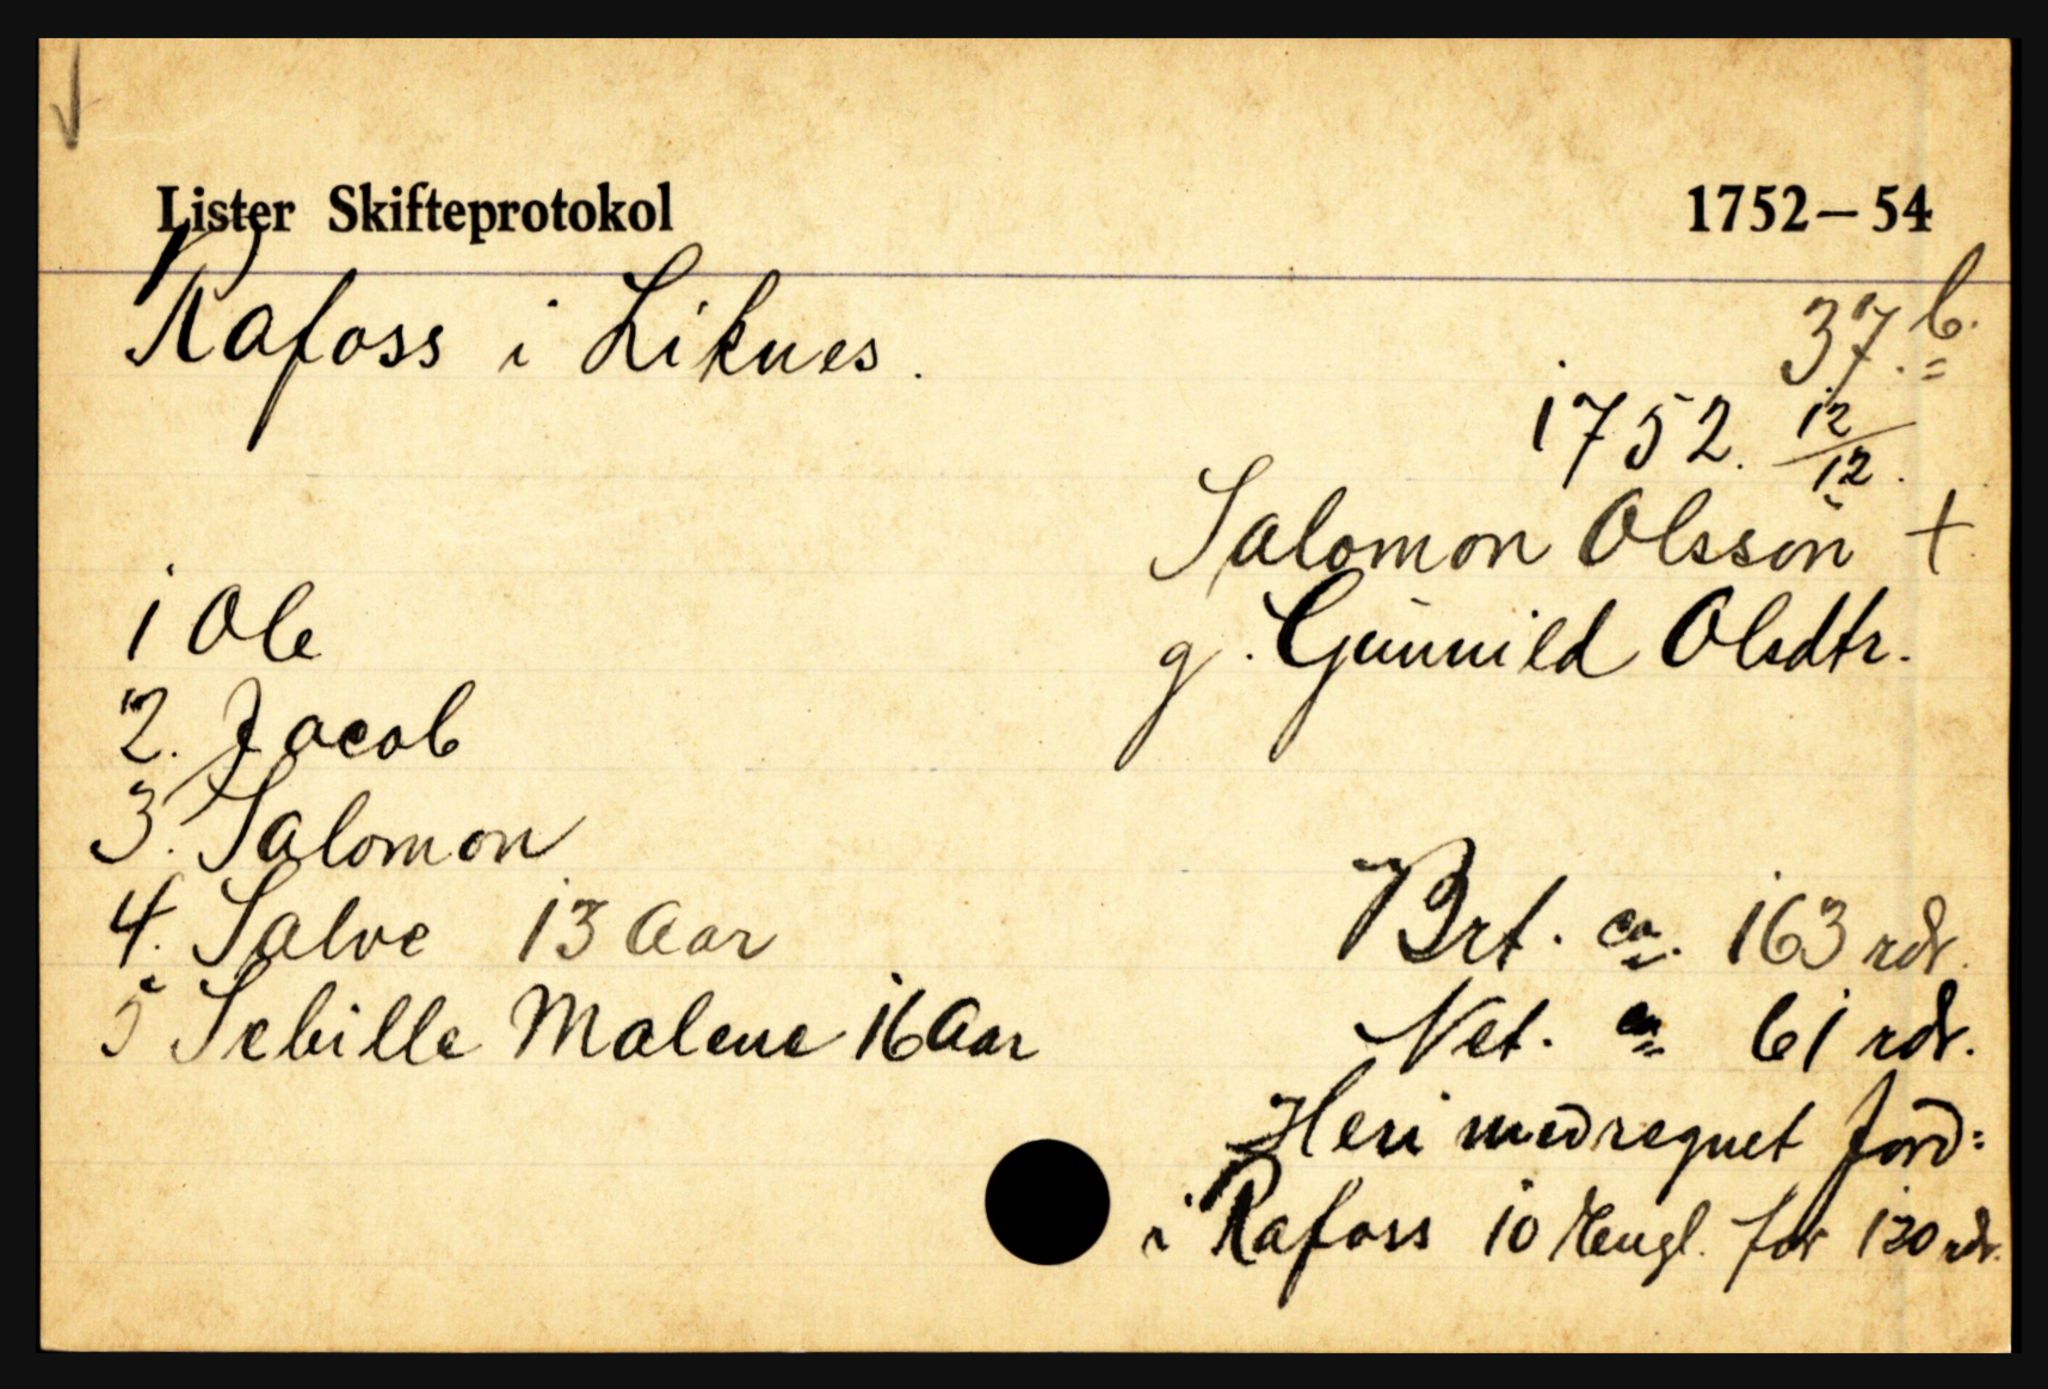 Lister Skifteprotokol 1752–54
Rafoss i Liknes. 37.b.
1752. 12/12.
Salomon Olsson +
g. Gunnild Olsdtr.
1 Ole
2. Jacob
3. Salomon
4. Salve 13 Aar
5 Sebille Malene 16 Aar
Brt. ca. 163 rdr.
Net. ca 61 rdr.
Heri medregnet jord:
i Rafoss 10 Engl. for 120 rdr.